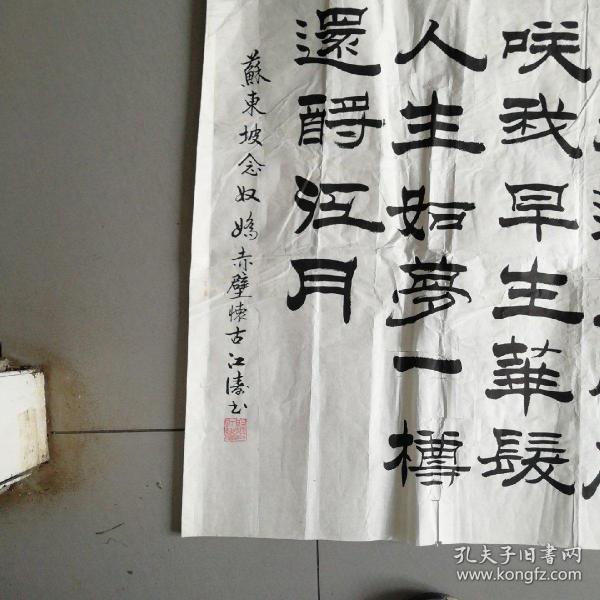 咲我早生華髮
人生如夢一樽
還酹江月
蘇東坡念奴嬌赤壁懷古江濤书
孔夫子旧书网
www.kongfz.com